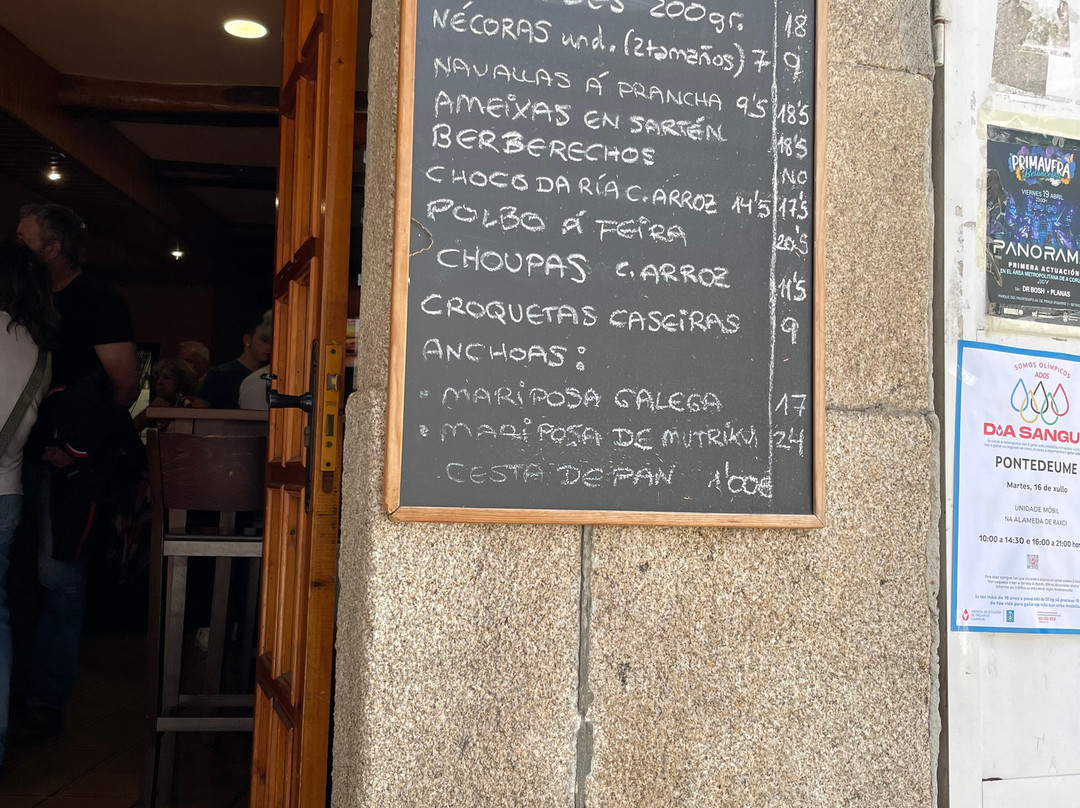 200gr. 18
NÉCORAS und. (2tamaños) 7 9
NAVALLAS Á PRANCHA 9'5 18'5
AMEIXAS EN SARTÉN 18'5
BERBERECHOS NO
CHOCO DA RÍA C. ARROZ 14'5 17'5
POLBO Á FEIRA 20'5
CHOUPAS C. ARROZ 11'5
CROQUETAS CASEIRAS 9
ANCHOAS:
• MARIPOSA GALEGA 17
• MARIPOSA DE MUTRIKU 24
CESTA DE PAN 1'00€
PRIMAVERA
VIERNES 19 ABRIL
PANORAM
PRIMERA ACTUACIÓN
EN EL ÁREA METROPOLITANA DE A COR
DR BOSH • PLANAS
SOMOS OLÍMPICOS
ADOS
DOA SANGU
PONTEDEUME
Martes, 16 de xullo
UNIDADE MÓBIL
NA ALAMEDA DE RAXOI
10:00 a 14:30 e 16:00 a 21:00 hor